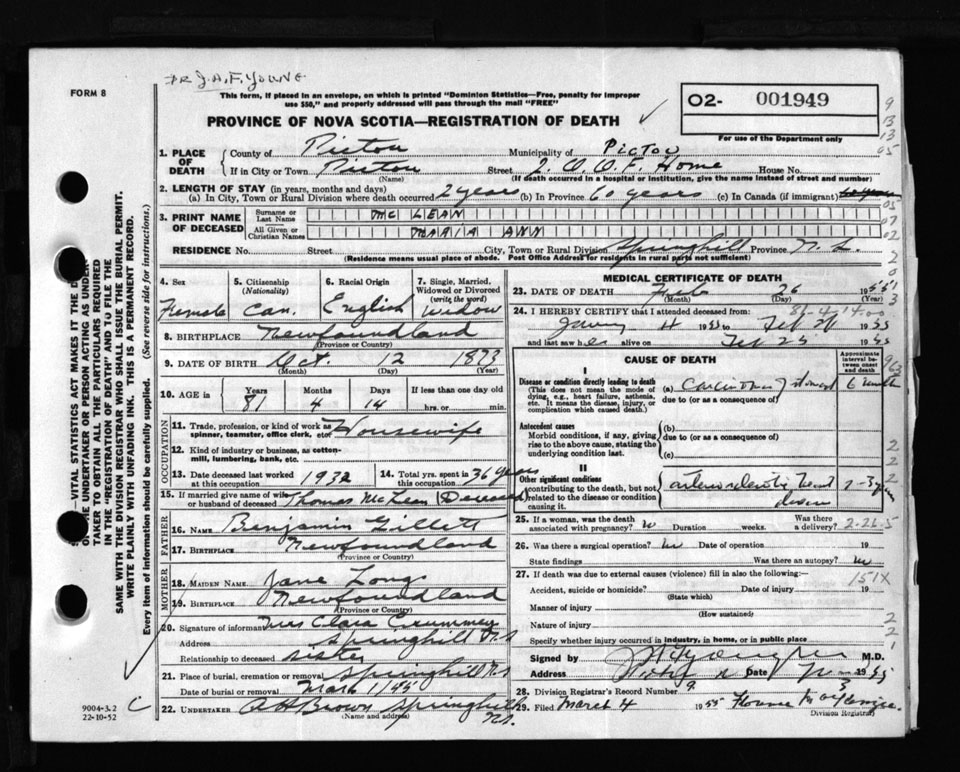 DR J.A.F. YOUNG
FORM 8
This form, if placed in an envelope, on which is printed "Dominion Statistics—Free, penalty for improper
use $50," and properly addressed will pass through the mail "FREE"
O2- 001949
For use of the Department only
PROVINCE OF NOVA SCOTIA—REGISTRATION OF DEATH
1. PLACE OF DEATH
County of Pictou Municipality of PICTOU
If in City or Town Pictou Street I.O.O.F. Home House No.
(Name) (If death occurred in a hospital or institution, give the name instead of street and number)
2. LENGTH OF STAY (in years, months and days)
(a) In City, Town or Rural Division where death occurred 2 years (b) In Province 60 years (c) In Canada (if immigrant)
3. PRINT NAME OF DECEASED
Surname or Last Name MC LEAN
All Given or Christian Names MARIA ANN
RESIDENCE No. Street City, Town or Rural Division Springhill Province N.S.
(Residence means usual place of abode. Post Office Address for residents in rural parts not sufficient)
4. Sex Female
5. Citizenship (Nationality) Can.
6. Racial Origin English
7. Single, Married, Widowed or Divorced (write the word) Widow
8. BIRTHPLACE Newfoundland
(Province or Country)
9. DATE OF BIRTH Oct. 12 1873
(Month) (Day) (Year)
10. AGE in Years Months Days If less than one day old
81 4 14 hrs. or min.
OCCUPATION
11. Trade, profession, or kind of work as spinner, teamster, office clerk, etc. Housewife
12. Kind of industry or business, as cotton-mill, lumbering, bank, etc.
13. Date deceased last worked at this occupation 1932
14. Total yrs. spent in this occupation 36 years
15. If married give name of wife or husband of deceased Thomas McLean (Deceased)
FATHER
16. NAME Benjamin Gillett
17. BIRTHPLACE Newfoundland
(Province or Country)
MOTHER
18. MAIDEN NAME Jane Long
19. BIRTHPLACE Newfoundland
(Province or Country)
20. Signature of informant Mrs Clara Crummey
Address Springhill N.S
Relationship to deceased sister
21. Place of burial, cremation or removal Springhill N.S
Date of burial or removal March 1 1955
22. UNDERTAKER A H Brown Springhill N.S.
(Name and address)
9004-3.2
22-10-52
MEDICAL CERTIFICATE OF DEATH
23. DATE OF DEATH Feb 26 1955
(Month) (Day) (Year)
24. I HEREBY CERTIFY that I attended deceased from:
4 1955 to Feb 26 1955
and last saw her alive on Feb 25 1955
CAUSE OF DEATH
Approximate interval between onset and death
I
Disease or condition directly leading to death
(This does not mean the mode of dying, e.g., heart failure, asthenia, etc. It means the disease, injury, or complication which caused death.)
(a) Carcinoma of stomach 6 months
due to (or as a consequence of)
Antecedent causes
Morbid conditions, if any, giving rise to the above cause, stating the underlying condition last.
(b)
due to (or as a consequence of)
(c)
II
Other significant conditions
contributing to the death, but not related to the disease or condition causing it.
arteriosclerotic heart disease 2-3 years
25. If a woman, was the death associated with pregnancy? no Duration weeks. Was there a delivery?
26. Was there a surgical operation? no Date of operation 19
State findings Was there an autopsy? no
27. If death was due to external causes (violence) fill in also the following:-
151X
Accident, suicide or homicide? Date of injury 19
(State which)
Manner of injury
(How sustained)
Nature of injury
Specify whether injury occurred in industry, in home, or in public place
Signed by M.D.
Address Pictou Date 1955
28. Division Registrar's Record Number 9
29. Filed March 4 1955
Division Registrar
TAKER TO OBTAIN ALL THE PARTICULARS REQUIRED
IN THE "REGISTRATION OF DEATH" AND TO FILE THE
SAME WITH THE DIVISION REGISTRAR WHO SHALL ISSUE THE BURIAL PERMIT.
WRITE PLAINLY WITH UNFADING INK. THIS IS A PERMANENT RECORD.
Every item of information should be carefully supplied. (See reverse side for instructions.)